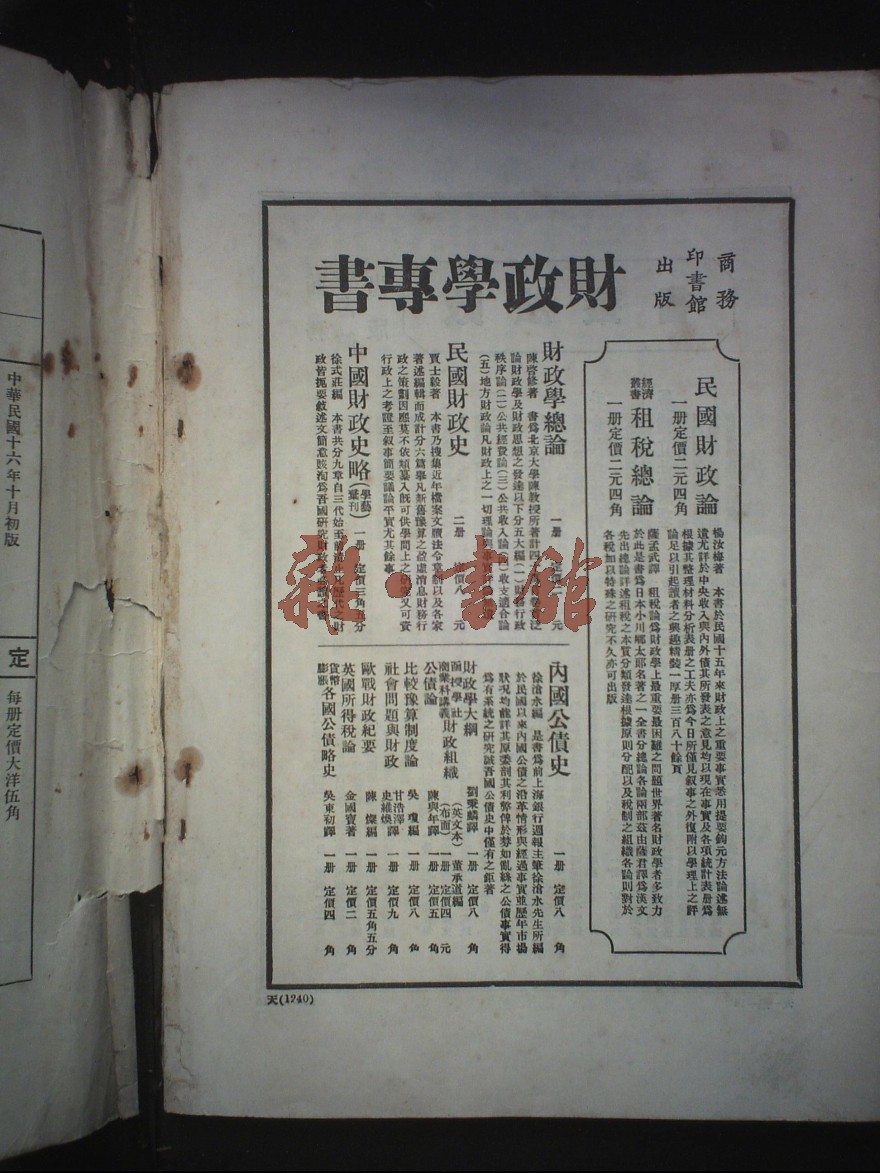 商務
印書館
出版
財政學專書
民國財政論
一册定價二元四角
楊汝梅著 本書於民國十五年來財政上之重要事實悉用提要鈎元方法論述無
遺尤詳於中央收入與內外債其所發表之意見均以現在事實及各項統計表册爲
根據其整理材料分析表册之工夫亦爲今日所僅見叙事之外復附以學理上之評
論足以引起讀者之興趣精裝一厚册三百八十餘頁
經濟叢書
租稅總論
一册定價二元四角
薩孟武譯 租稅論爲財政學上最重要最困難之問題世界著名財政學者多致力
於此是書爲日本小川鄉太郎名著之一全書分總論各論兩部茲由薩君譯爲漢文
先出總論詳述租稅之本質分類發達根據原則分配以及稅制之組織各論則對於
各稅加以特殊之研究不久亦可出版
財政學總論
一册 定價 元
陳啓修著 書爲北京大學陳教授所著計四
論財政學及財政思想之發達以下分五大編(一)財務行政
秩序論(二)公共經費論(三)公共收入論 收支適合論
(五)地方財政論凡財政上之一切理論與事實
民國財政史
二册 定價八 元
賈士毅著 本書乃搜集近年檔案文牘法令章制以及各家
著述編輯而成計分六篇舉凡新舊豫算之盈虛消息財務行
政之策劃因 莫不依類纂入既可供學問上之研究又可資
行政上之考證至叙事簡要議論平實尤其餘事
中國財政史略(學藝彙刊)
一册 定價三角五分
徐式莊編 本書共分九章自三代始至前清止凡歷代之財
政皆扼要敍述文簡意賅洵爲吾國研究財政
內國公債史
一册 定價八 角
徐滄水編 是書爲前上海銀行週報主筆徐滄水先生所編
於民國以來內國公債之沿革情形與經過事實並歷年市場
狀況均能詳其原委剖其利弊俾於棼如亂絲之公債事實得
爲有系統之研究誠吾國公債史中僅有之鉅著
財政學大綱 劉秉麟譯 一册 定價八 角
函授學社商業科講義 財政組織 (英文本) 董承道編 (布面)一册 定價四 元
公債論 陳與年譯 一册 定價五 角
比較豫算制度論 吳瓊編 一册 定價八 角
社會問題與財政 甘浩澤 史維煥譯 一册 定價九 角
歐戰財政紀要 陳燦編 一册 定價五角五分
英國所得稅論 金國寶著 一册 定價二 角
貨幣膨脹 各國公債略史 吳東初譯 一册 定價四 角
天(1240)
中華民國十六年十月初版
定
每册定價大洋伍角